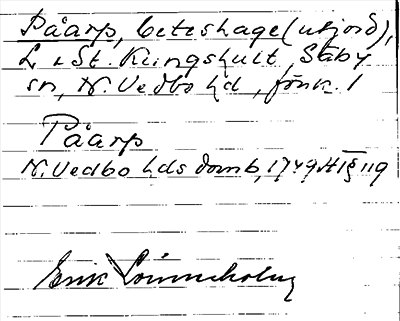 Påarp, beteshage (utjord),
L. o St. Kungshult, Säby
sn, N. Vedbo hd, Jönk. l
Påarp
N. Vedbo hds domb, 1749 Ht § 119
Erik Lönnerholm